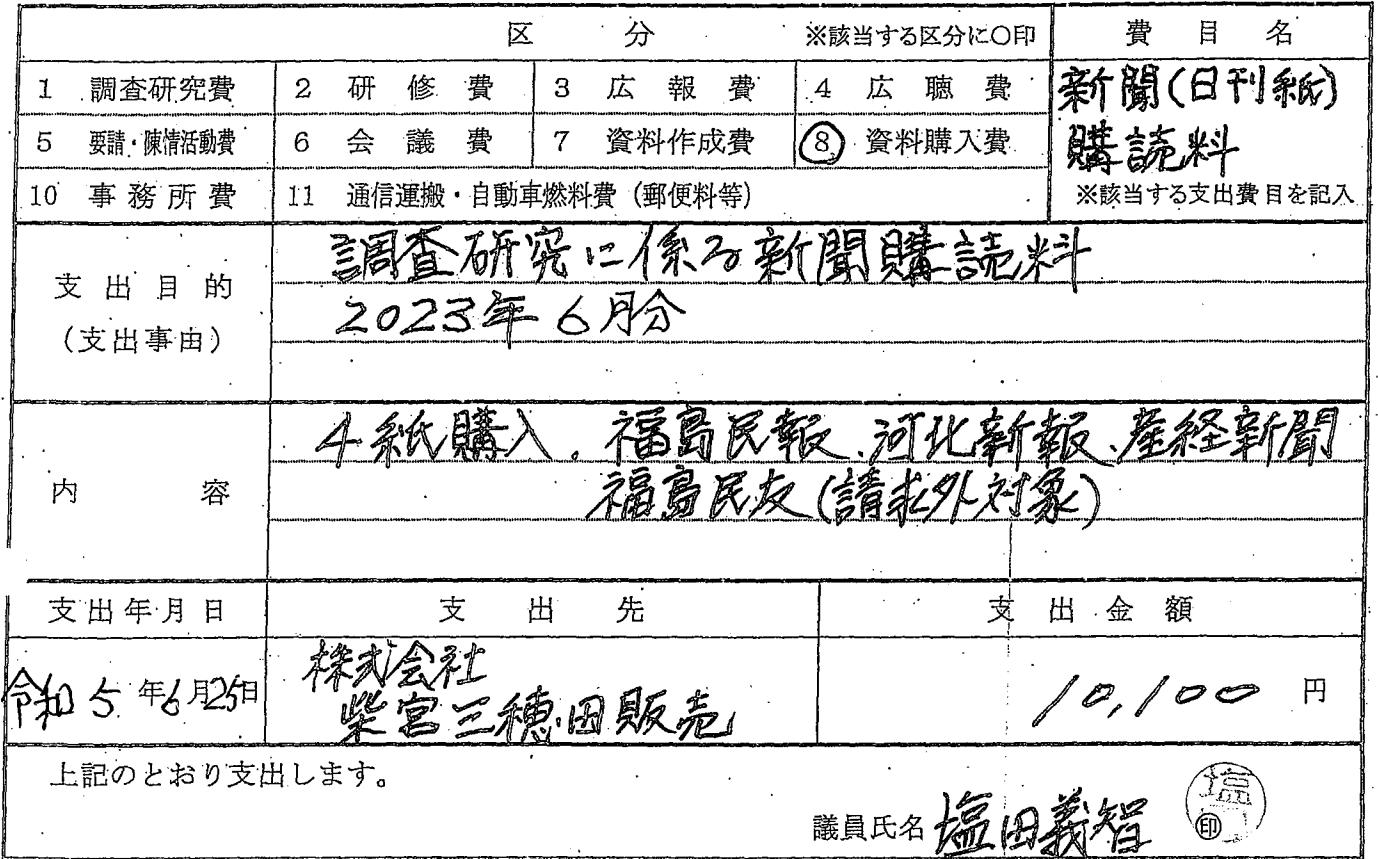 区 分 ※該当する区分に○印 費 目 名
1 調査研究費 2 研 修 費 3 広 報 費 4 広 聴 費 新聞(日刊紙)
5 要請・陳情活動費 6 会 議 費 7 資料作成費 8 資料購入費 購読料
10 事務所費 11 通信運搬・自動車燃料費(郵便料等) ※該当する支出費目を記入
支出目的 調査研究に係る新聞購読料
(支出事由) 2023年6月分
4紙購入、福島民報、河北新報、産経新聞
内 容 福島民友(請求外対象)
支出年月日 支 出 先 支 出 金 額
令和5年6月25日 株式会社 10,100 円
柴宮三穂田販売
上記のとおり支出します。
議員氏名 塩田義智 ㊞